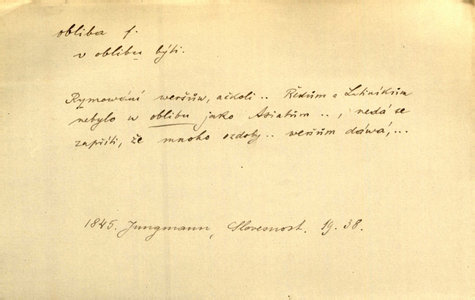 obliba f.
v oblibu býti.
Rymowání weršůw, ačkoli.. Řekům a Latiníkům
nebylo w oblibu jako Asiatům.., nedá se
zapříti, že mnoho ozdoby.. weršům dáwá,...
1845. Jungmann, Slovesnost. 19. 38.